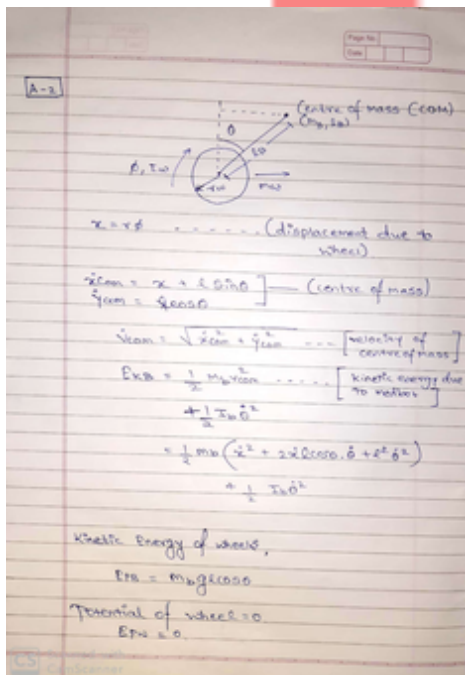 Page No.
Date
A-2
Centre of mass (COM)
(mB, IB)
θ
lB
φ, Iw
rw
mw
x = rφ ...... (displacement due to wheel)
ẋcom = x + l sinθ ] — (centre of mass)
ẏcom = l cosθ
vcom = √ẋ²com + ẏ²com ... [velocity of centre of mass]
EKB = 1/2 mb v²com ..... [kinetic energy due to
+ 1/2 Ib θ̇²
= 1/2 mb (ẋ² + 2ẋl cosθ. θ̇ + l² θ̇²)
+ 1/2 Ib θ̇²
Kinetic Energy of wheels,
EPB = mb g l cosθ
Potential of wheel = 0.
EPW = 0.
CS
CamScanner